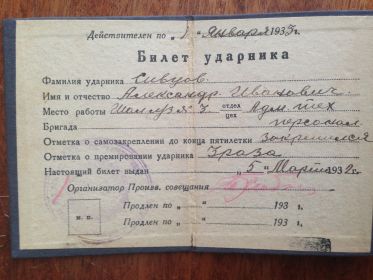 Действителен по „1“ Января 1935г.
Билет ударника
Фамилия ударника Сивцов
Имя и отчество Александр Иванович
Место работы отдел цех Адм тех
Бригада персонал
Отметка о самозакреплении до конца пятилетки закрепился
Отметка о премировании ударника 3 раза
Настоящий билет выдан „5“ Марта 1932г.
Организатор Произв. совещания
м.п.
Продлен по „ “ 193 г.
Продлен по „ “ 193 г.